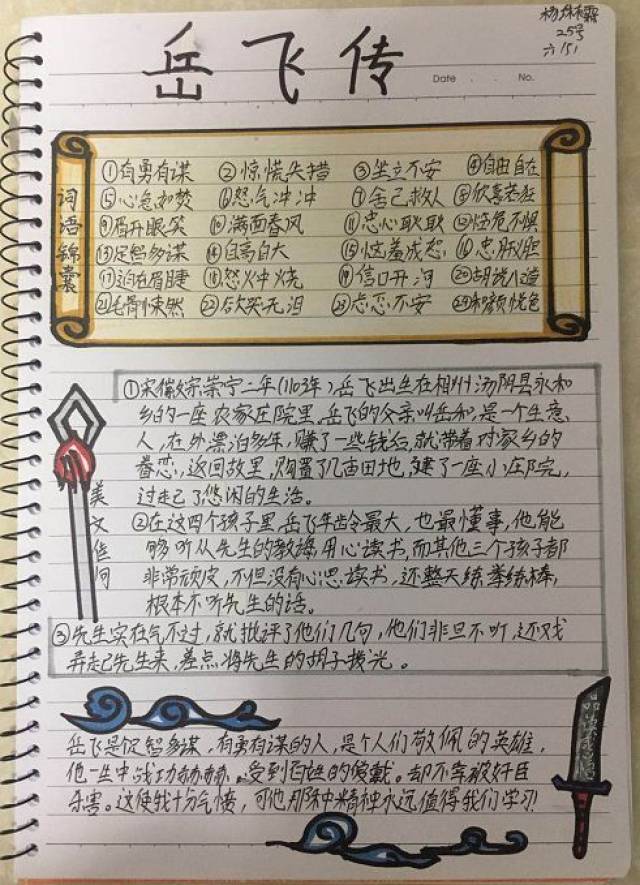 杨林霖
25号
六(5)
岳飞传
Date . . No.
词语锦囊
①有勇有谋 ②惊慌失措 ③坐立不安 ④自由自在
⑤心急如焚 ⑥怒气冲冲 ⑦舍己救人 ⑧欣喜若狂
⑨眉开眼笑 ⑩满面春风 ⑪忠心耿耿 ⑫临危不惧
⑬足智多谋 ⑭自高自大 ⑮恼羞成怒 ⑯忠肝义胆
⑰迫在眉睫 ⑱怒火中烧 ⑲信口开河 ⑳胡说八道
㉑毛骨悚然 ㉒欲哭无泪 ㉓忐忑不安 ㉔和颜悦色
美文佳句
①宋徽宗崇宁二年(1103年)岳飞出生在相州汤阴县永和
乡的一座农家庄院里。岳飞的父亲叫岳和,是一个生意
人,在外漂泊多年,赚了一些钱后,就带着对家乡的
眷恋,返回故里,购置了几亩田地,建了一座小庄院,
过起了悠闲的生活。
②在这四个孩子里,岳飞年龄最大,也最懂事,他能
够听从先生的教诲,用心读书,而其他三个孩子都
非常顽皮,不但没有心思读书,还整天练拳练棒,
根本不听先生的话。
③先生实在气不过,就批评了他们几句,他们非旦不听,还戏
弄起先生来,差点将先生的胡子拨光。
品读感悟
岳飞是足智多谋,有勇有谋的人,是个人们敬佩的英雄,
他一生中战功赫赫,受到百姓的爱戴。却不幸被奸臣
杀害。这使我十分气愤,可他那种精神永远值得我们学习!